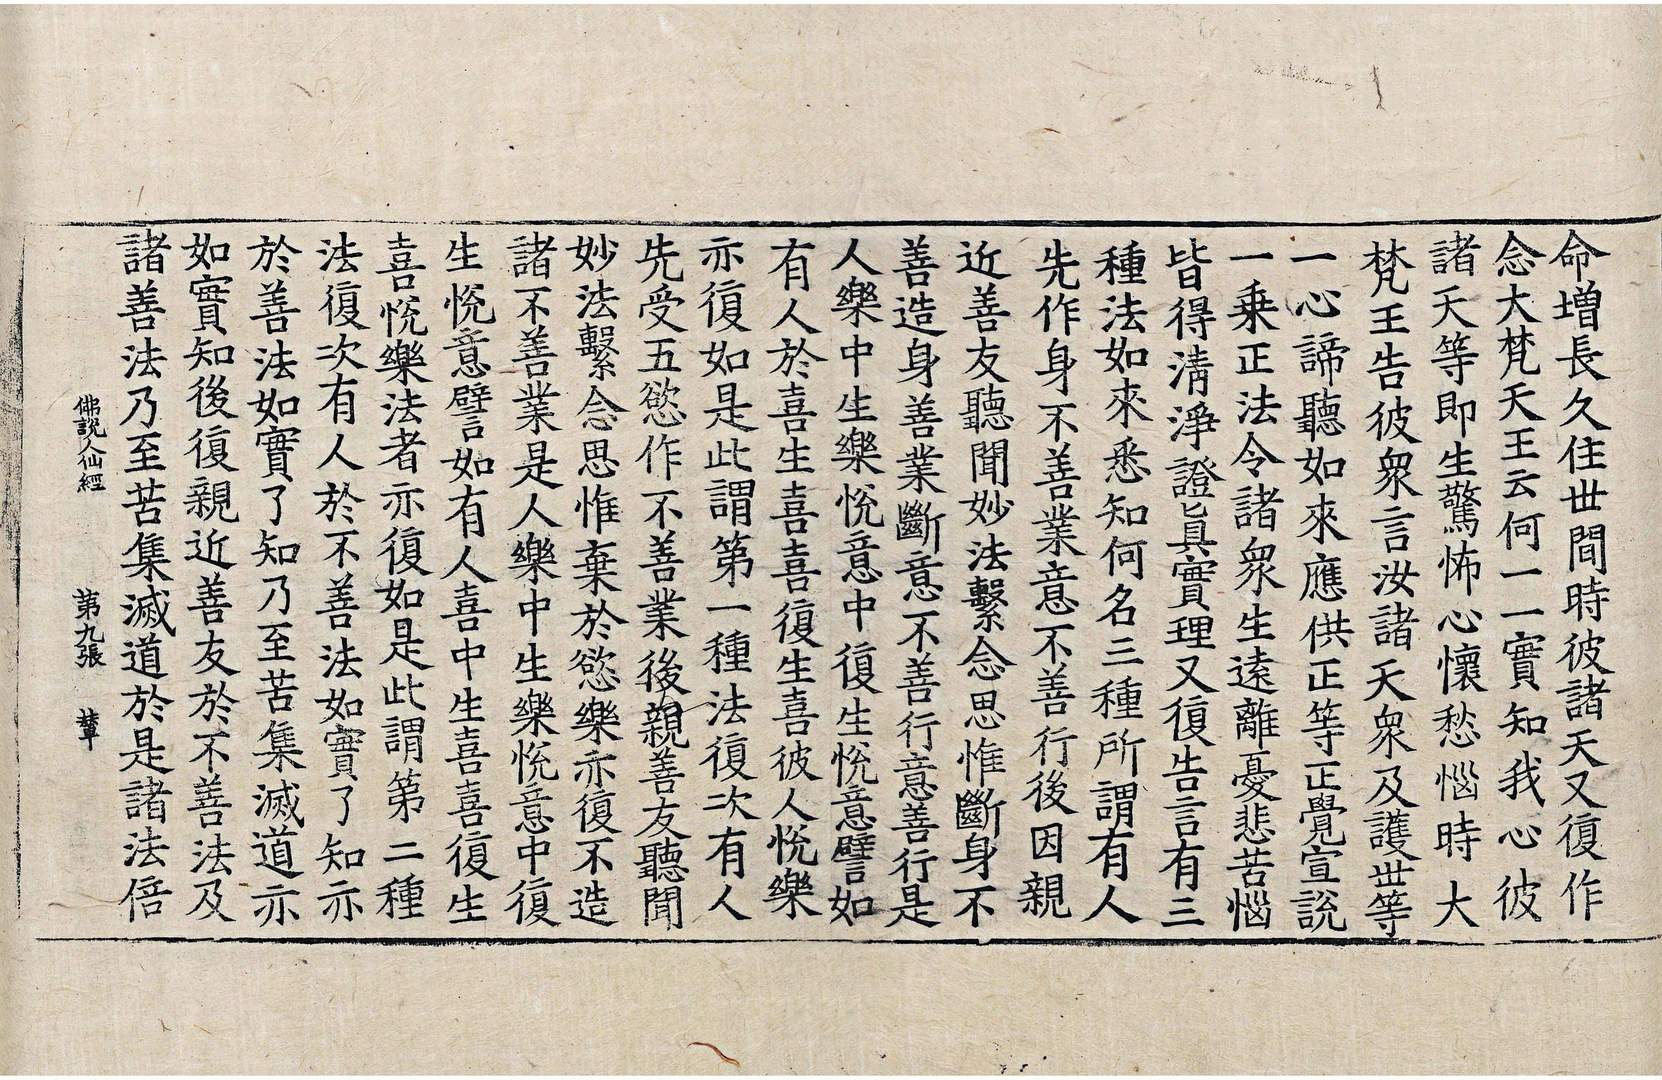 命增長久住世間時彼諸天又復作
念大梵天王云何一一實知我心彼
諸天等即生驚怖心懷愁惱時大
梵王告彼衆言汝諸天衆及護世等
一心諦聽如來應供正等正覺宣說
一乗正法令諸衆生遠離憂悲苦惱
皆得淸淨證眞實理又復告言有三
種法如來悉知何名三種所謂有人
先作身不善業意不善行後因親
近善友聽聞妙法繫念思惟斷身不
善造身善業斷意不善行意善行是
人樂中生樂悅意中復生悅意譬如
有人於喜生喜喜復生喜彼人悅樂
亦復如是此謂第一種法復次有人
先受五慾作不善業後親善友聽聞
妙法繫念思惟棄於慾樂亦復不造
諸不善業是人樂中生樂悅意中復
生悅意譬如有人喜中生喜喜復生
喜悅樂法者亦復如是此謂第二種
法復次有人於不善法如實了知亦
於善法如實了知乃至苦集滅道亦
如實知後復親近善友於不善法及
諸善法乃至苦集滅道於是諸法倍
佛說人仙經 第九張 輦